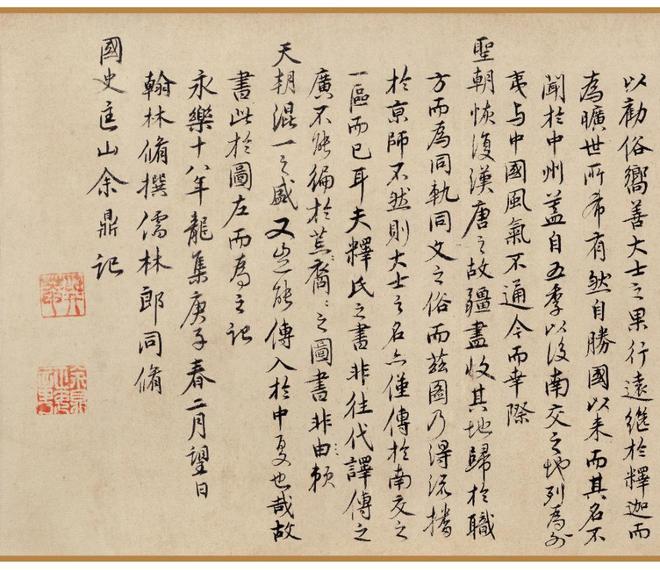 以勸俗嚮善大士之果行遠繼於釋迦而
為曠世所希有然自勝國以来而其名不
聞於中州蓋自五季以後南交之地列為外
夷与中國風氣不通今而幸際
聖朝恢復漢唐之故疆盡收其地歸於職
方而為同軌同文之俗而茲圖乃得流播
於京師不然則大士之名亦僅傳於南交之
一區而已耳夫釋氏之書非往代譯傳之
廣不能徧於荒裔〻之圖書非由賴
天朝混一之盛又豈能傳入於中夏也哉故
書此於圖左而為之記
永樂十八年龍集庚子春二月望日
翰林脩撰儒林郎同脩
國史匡山余鼎記